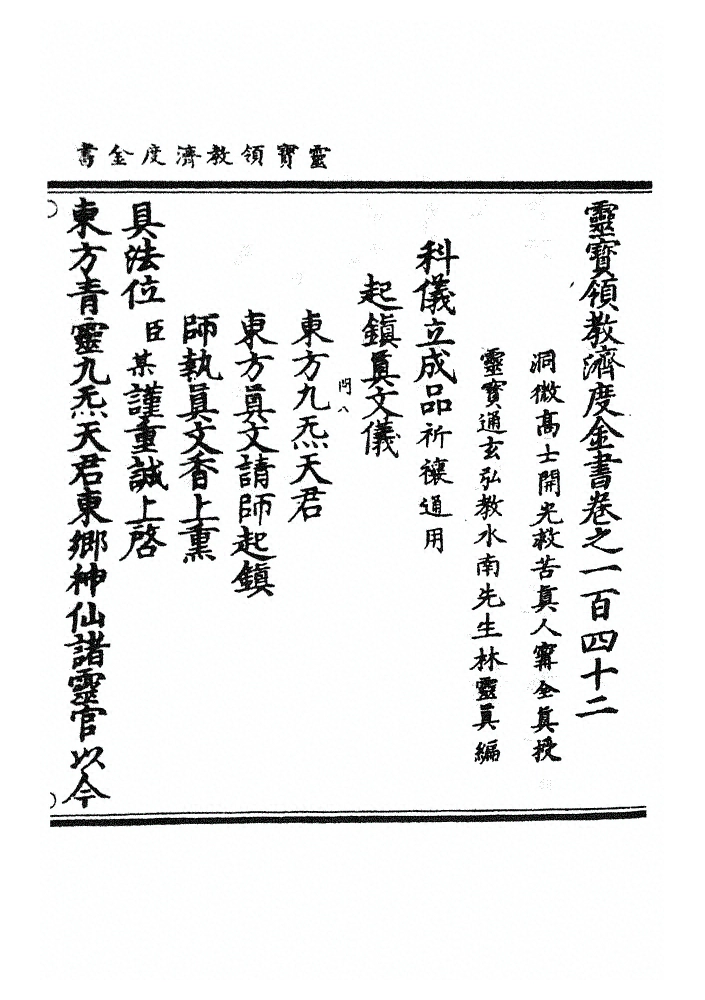 靈寶領教濟度金書
靈寶領教濟度金書卷之一百四十二
洞微高士開光救苦真人甯全真授
靈寶通玄弘教水南先生林靈眞編
科儀立成品祈禳通用
起鎮眞文儀
東方九炁天君
東方眞文請師起鎮
師執眞文香上熏
具法位臣某謹重誠上啓
東方青靈九炁天君東鄉神仙諸靈官以今